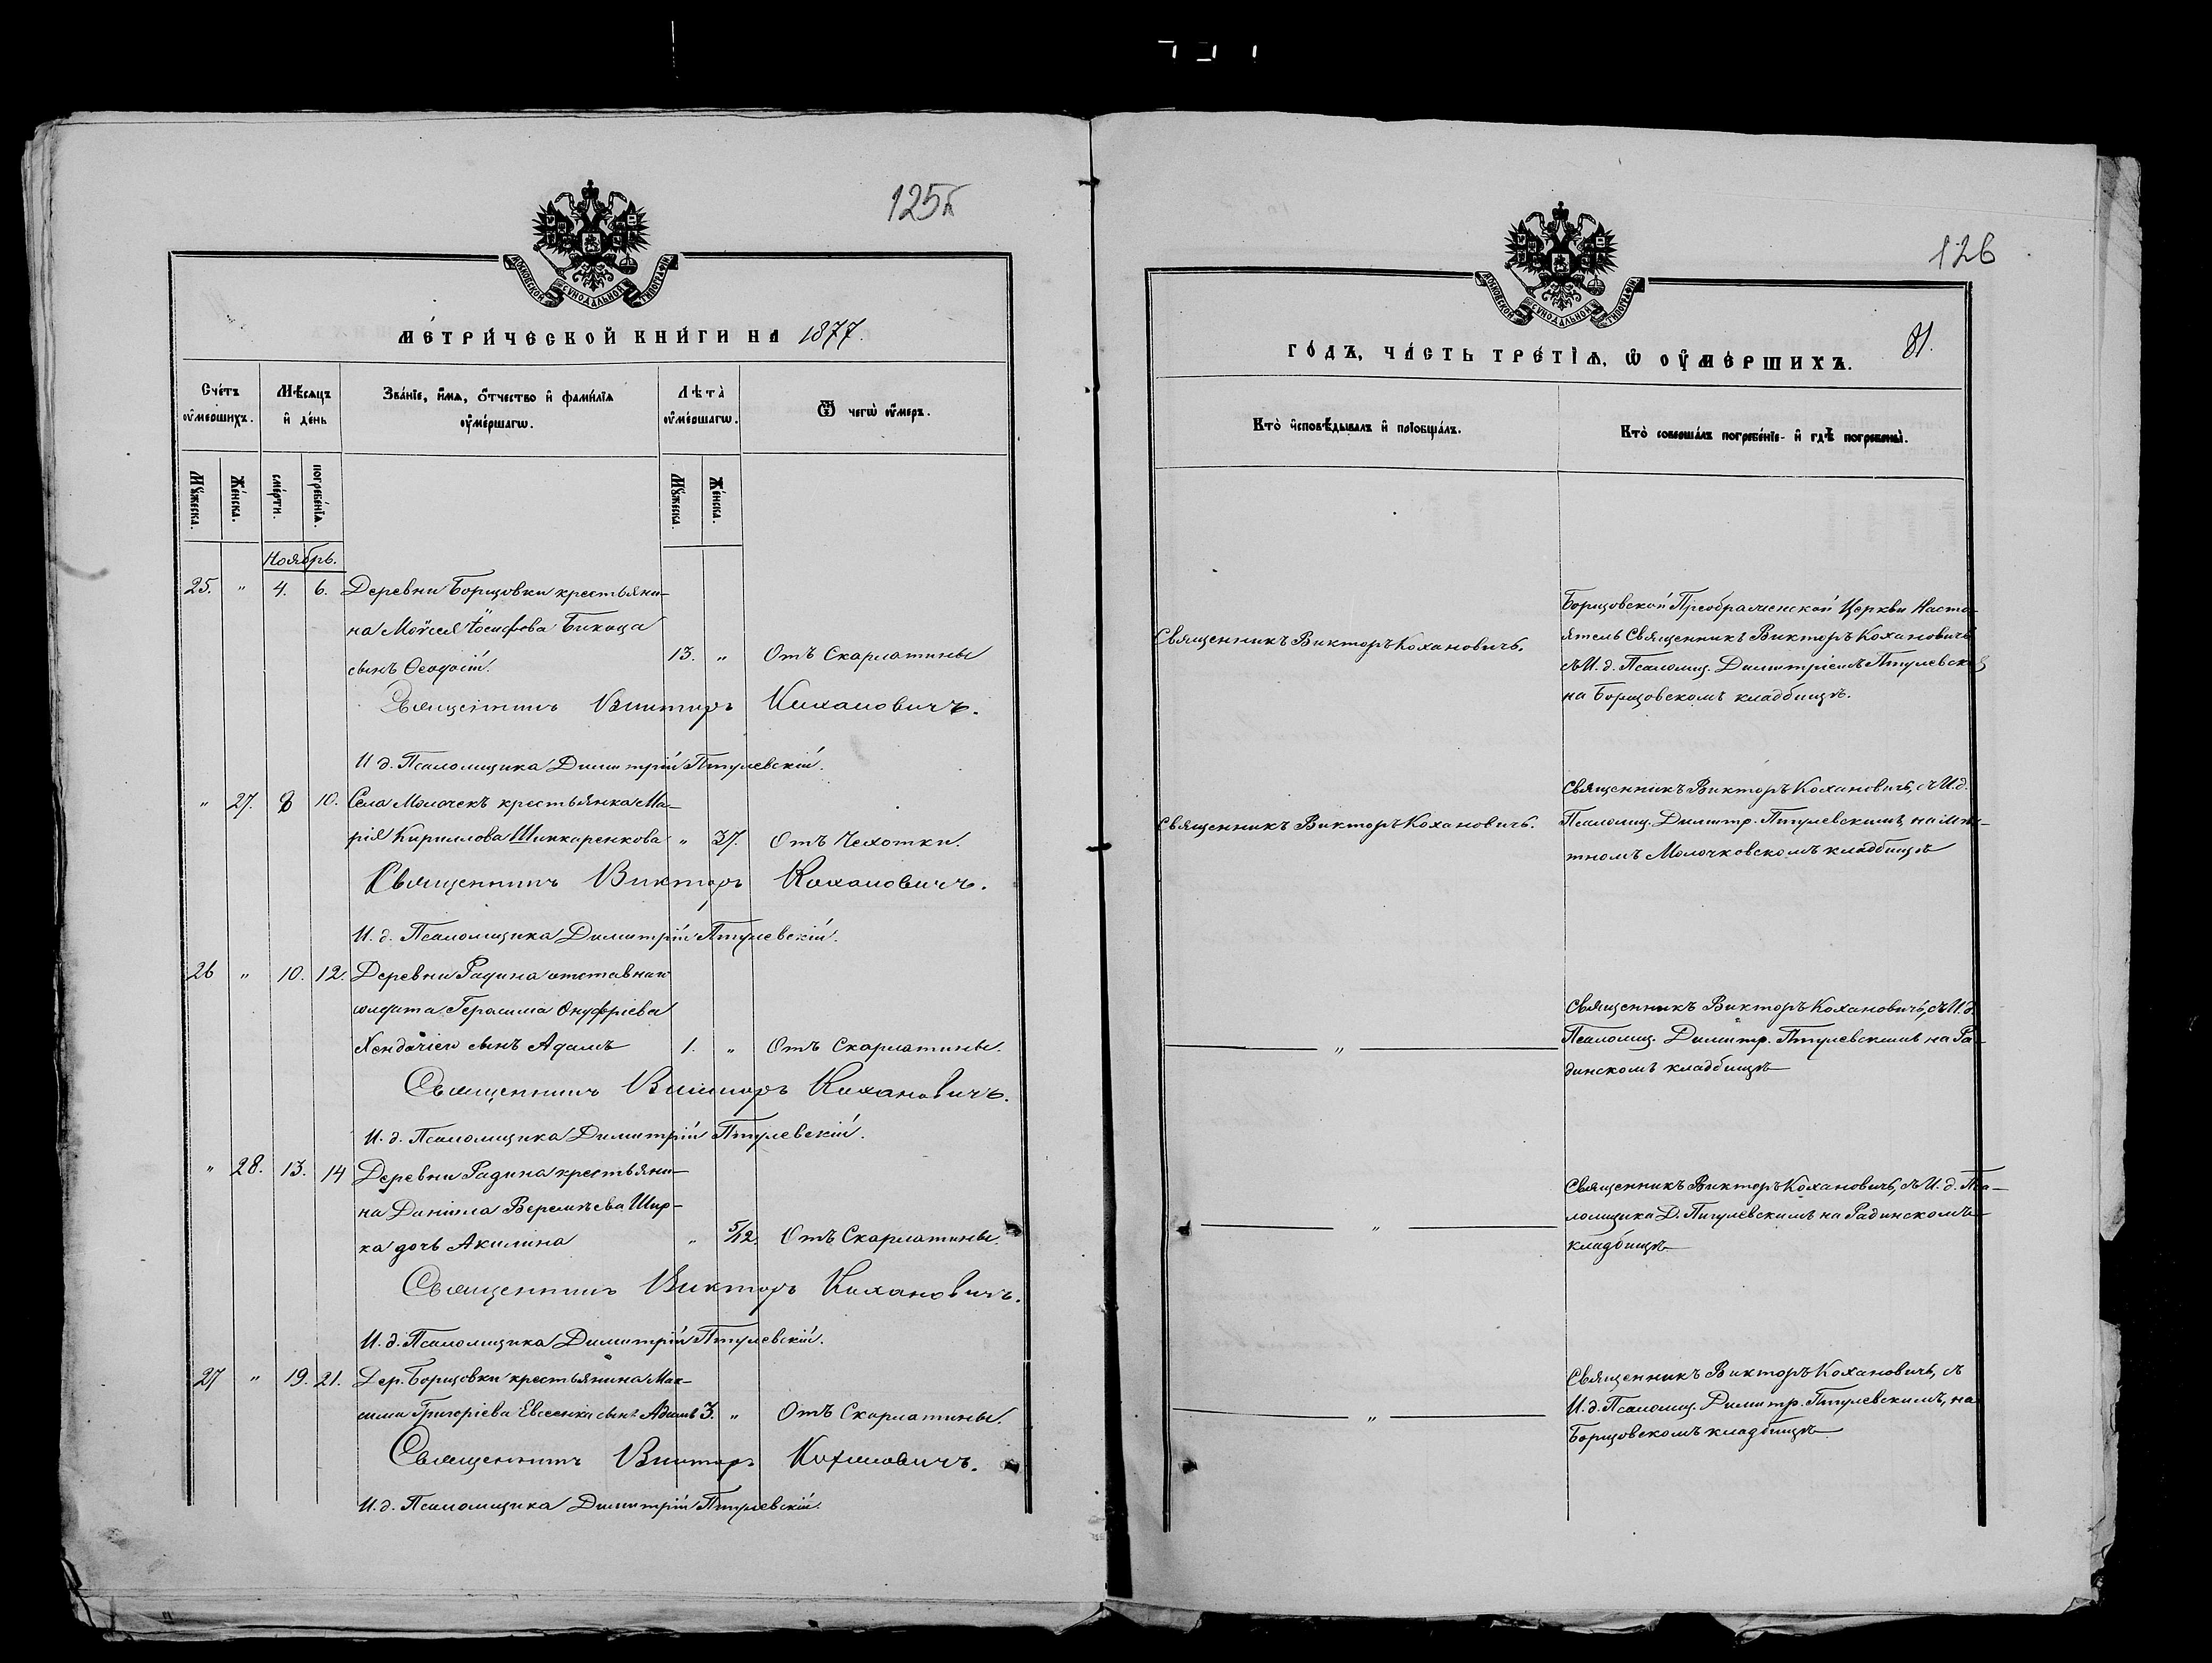 125б
МОСКОВСКОЙ СѴНОДАЛЬНОЙ ТИПОГРАФІИ
МЕТРИ́ЧЕСКОЙ КНИ́ГИ НА 1877.
Сче́тъ ᲂу҆ме́ршихъ.
Мѣ́сяцъ и҆ де́нь
Зва́нїе, и҆́мѧ, ѻ҆́тчество и҆ фами́лїѧ ᲂу҆ме́ршагѡ.
Лѣта̀ ᲂу҆ме́ршагѡ.
Ѿ чегѡ̀ ᲂу҆́меръ.
Мꙋ́жеска.
Же́нска.
сме́рти.
погребе́нїѧ.
Мꙋ́жеска.
Же́нска.
Ноябрь.
25. " 4. 6. Деревни Борщовки крестьяни-
на Моѵсея Іосифова Бикаца
сынъ Ѳеодосій. 13. " Отъ Скарлатины
Священникъ Викторъ Кохановичъ.
И д. Псаломщика Димитрій Пигулевскій.
" 27. 8 10. Села Молочекъ крестьянка Ма-
рія Кириллова Шинкаренкова " 37. Отъ Чехотки.
Священникъ Викторъ Кохановичъ.
И. д. Псаломщика Димитрій Пигулевскій.
26 " 10. 12. Деревни Радина отставнаго
солдата Герасима Онуфріева
сынъ Адамъ 1. " Отъ Скарлатины.
Священникъ Викторъ Кохановичъ.
И. д. Псаломщика Димитрій Пигулевскій.
" 28. 13. 14 Деревни Радина крестьяни-
на Даніила Веремѣева Шир-
ка дочь Акилина " 5/12. Отъ Скарлатины.
Священникъ Викторъ Кохановичъ.
И. д. Псаломщика Димитрій Пигулевскій.
27 " 19. 21. Дер. Борщовки крестьянина Мак-
сима Григоріева Евсеенка сынъ Адамъ 3. " Отъ Скарлатины.
Священникъ Викторъ Кохановичъ.
И. д. Псаломщика Димитрій Пигулевскій.
126
МОСКОВСКОЙ СѴНОДАЛЬНОЙ ТИПОГРАФІИ
81.
ГО́ДЪ, ЧА́СТЬ ТРЕ́ТІѦ, Ѡ҆ ОУ҆МЕ́РШИХЪ.
Кто̀ и҆сповѣ́дывалъ и҆ прїѡбща́лъ.
Кто̀ соверша́лъ погребе́нїе и҆ гдѣ̀ погребены̀.
Священникъ Викторъ Кохановичъ.
Борщовской Преображенской Церкви Насто-
ятель Священникъ Викторъ Кохановичъ
съ И. д. Псаломщ. Димитріемъ Пигулевск
на Борщовскомъ кладбищѣ.
Священникъ Викторъ Кохановичъ.
Священникъ Викторъ Кохановичъ, съ И.д.
Псаломщ. Димитр. Пигулевскимъ, на мѣс-
тномъ Молочковскомъ кладбищѣ
"
Священникъ Викторъ Кохановичъ, съ И. д.
Псаломщ. Димитр. Пигулевскимъ на Ра-
динскомъ кладбищѣ
"
Священникъ Викторъ Кохановичъ, съ И. д. Пса-
ломщика Д. Пигулевскимъ на Радинскомъ
кладбищѣ
"
Священникъ Викторъ Кохановичъ, съ
И. д. Псаломщ. Димитр. Пигулевскимъ, на
Борщовскомъ кладбищѣ